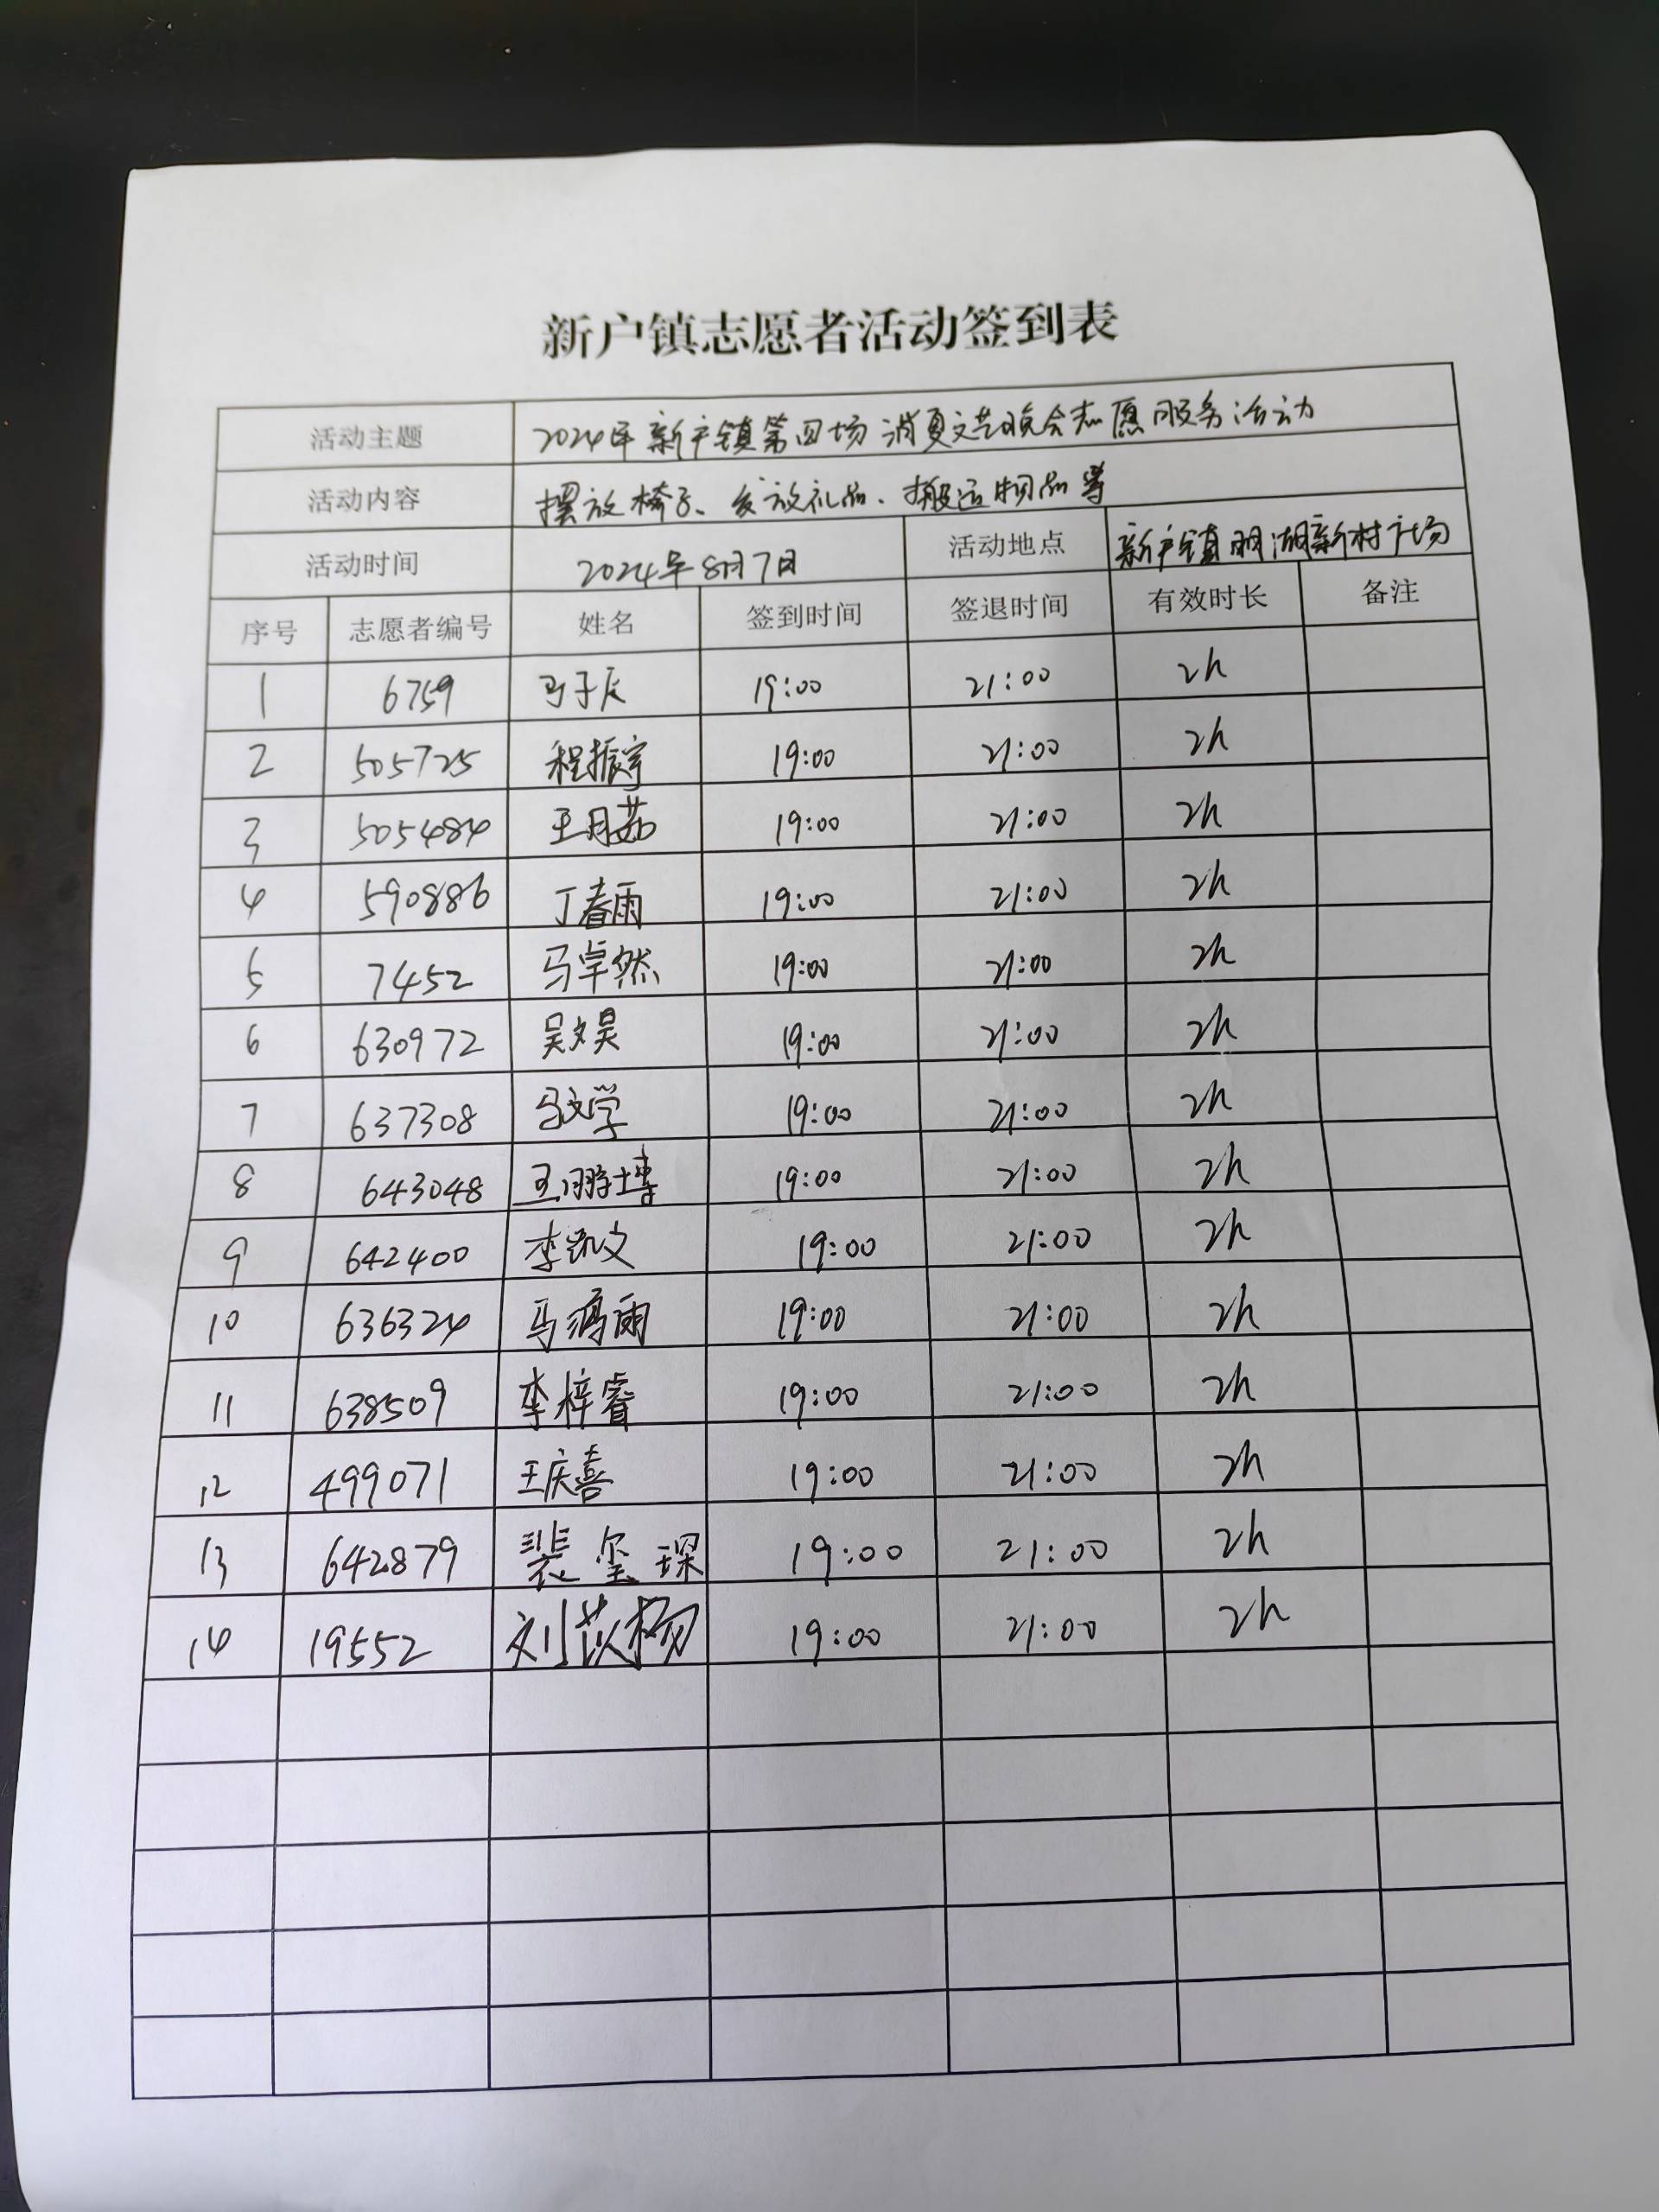 新户镇志愿者活动签到表
活动主题 2024年新户镇第四场消夏文艺晚会志愿服务活动
活动内容 摆放椅子、发放礼品、搬运物品等
活动时间 2024年8月7日 活动地点 新户镇明湖新村广场
序号 志愿者编号 姓名 签到时间 签退时间 有效时长 备注
1 6759 马子辰 19:00 21:00 2h
2 505725 程振宇 19:00 21:00 2h
3 505484 王月茹 19:00 21:00 2h
4 590886 丁春雨 19:00 21:00 2h
5 7452 马卓然 19:00 21:00 2h
6 630972 吴文昊 19:00 21:00 2h
7 637308 马文学 19:00 21:00 2h
8 643048 王鹏博 19:00 21:00 2h
9 642400 李凯文 19:00 21:00 2h
10 636324 马鸿雨 19:00 21:00 2h
11 638509 李梓睿 19:00 21:00 2h
12 499071 王庆喜 19:00 21:00 2h
13 642879 裴玺琛 19:00 21:00 2h
14 19552 刘苡杨 19:00 21:00 2h